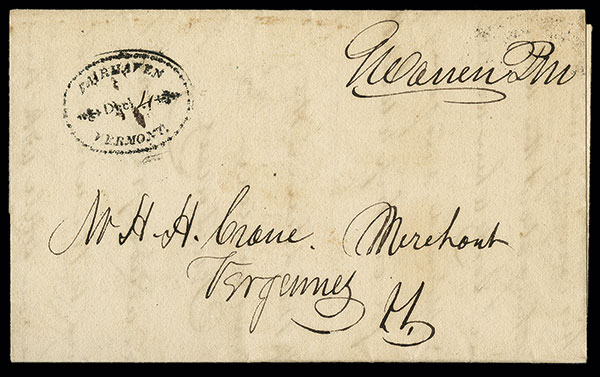 FAIRHAVEN
Dec 4
VERMONT.
G Warren PM
Mr H. H. Crane. Merchant
Vergennes
Vt.